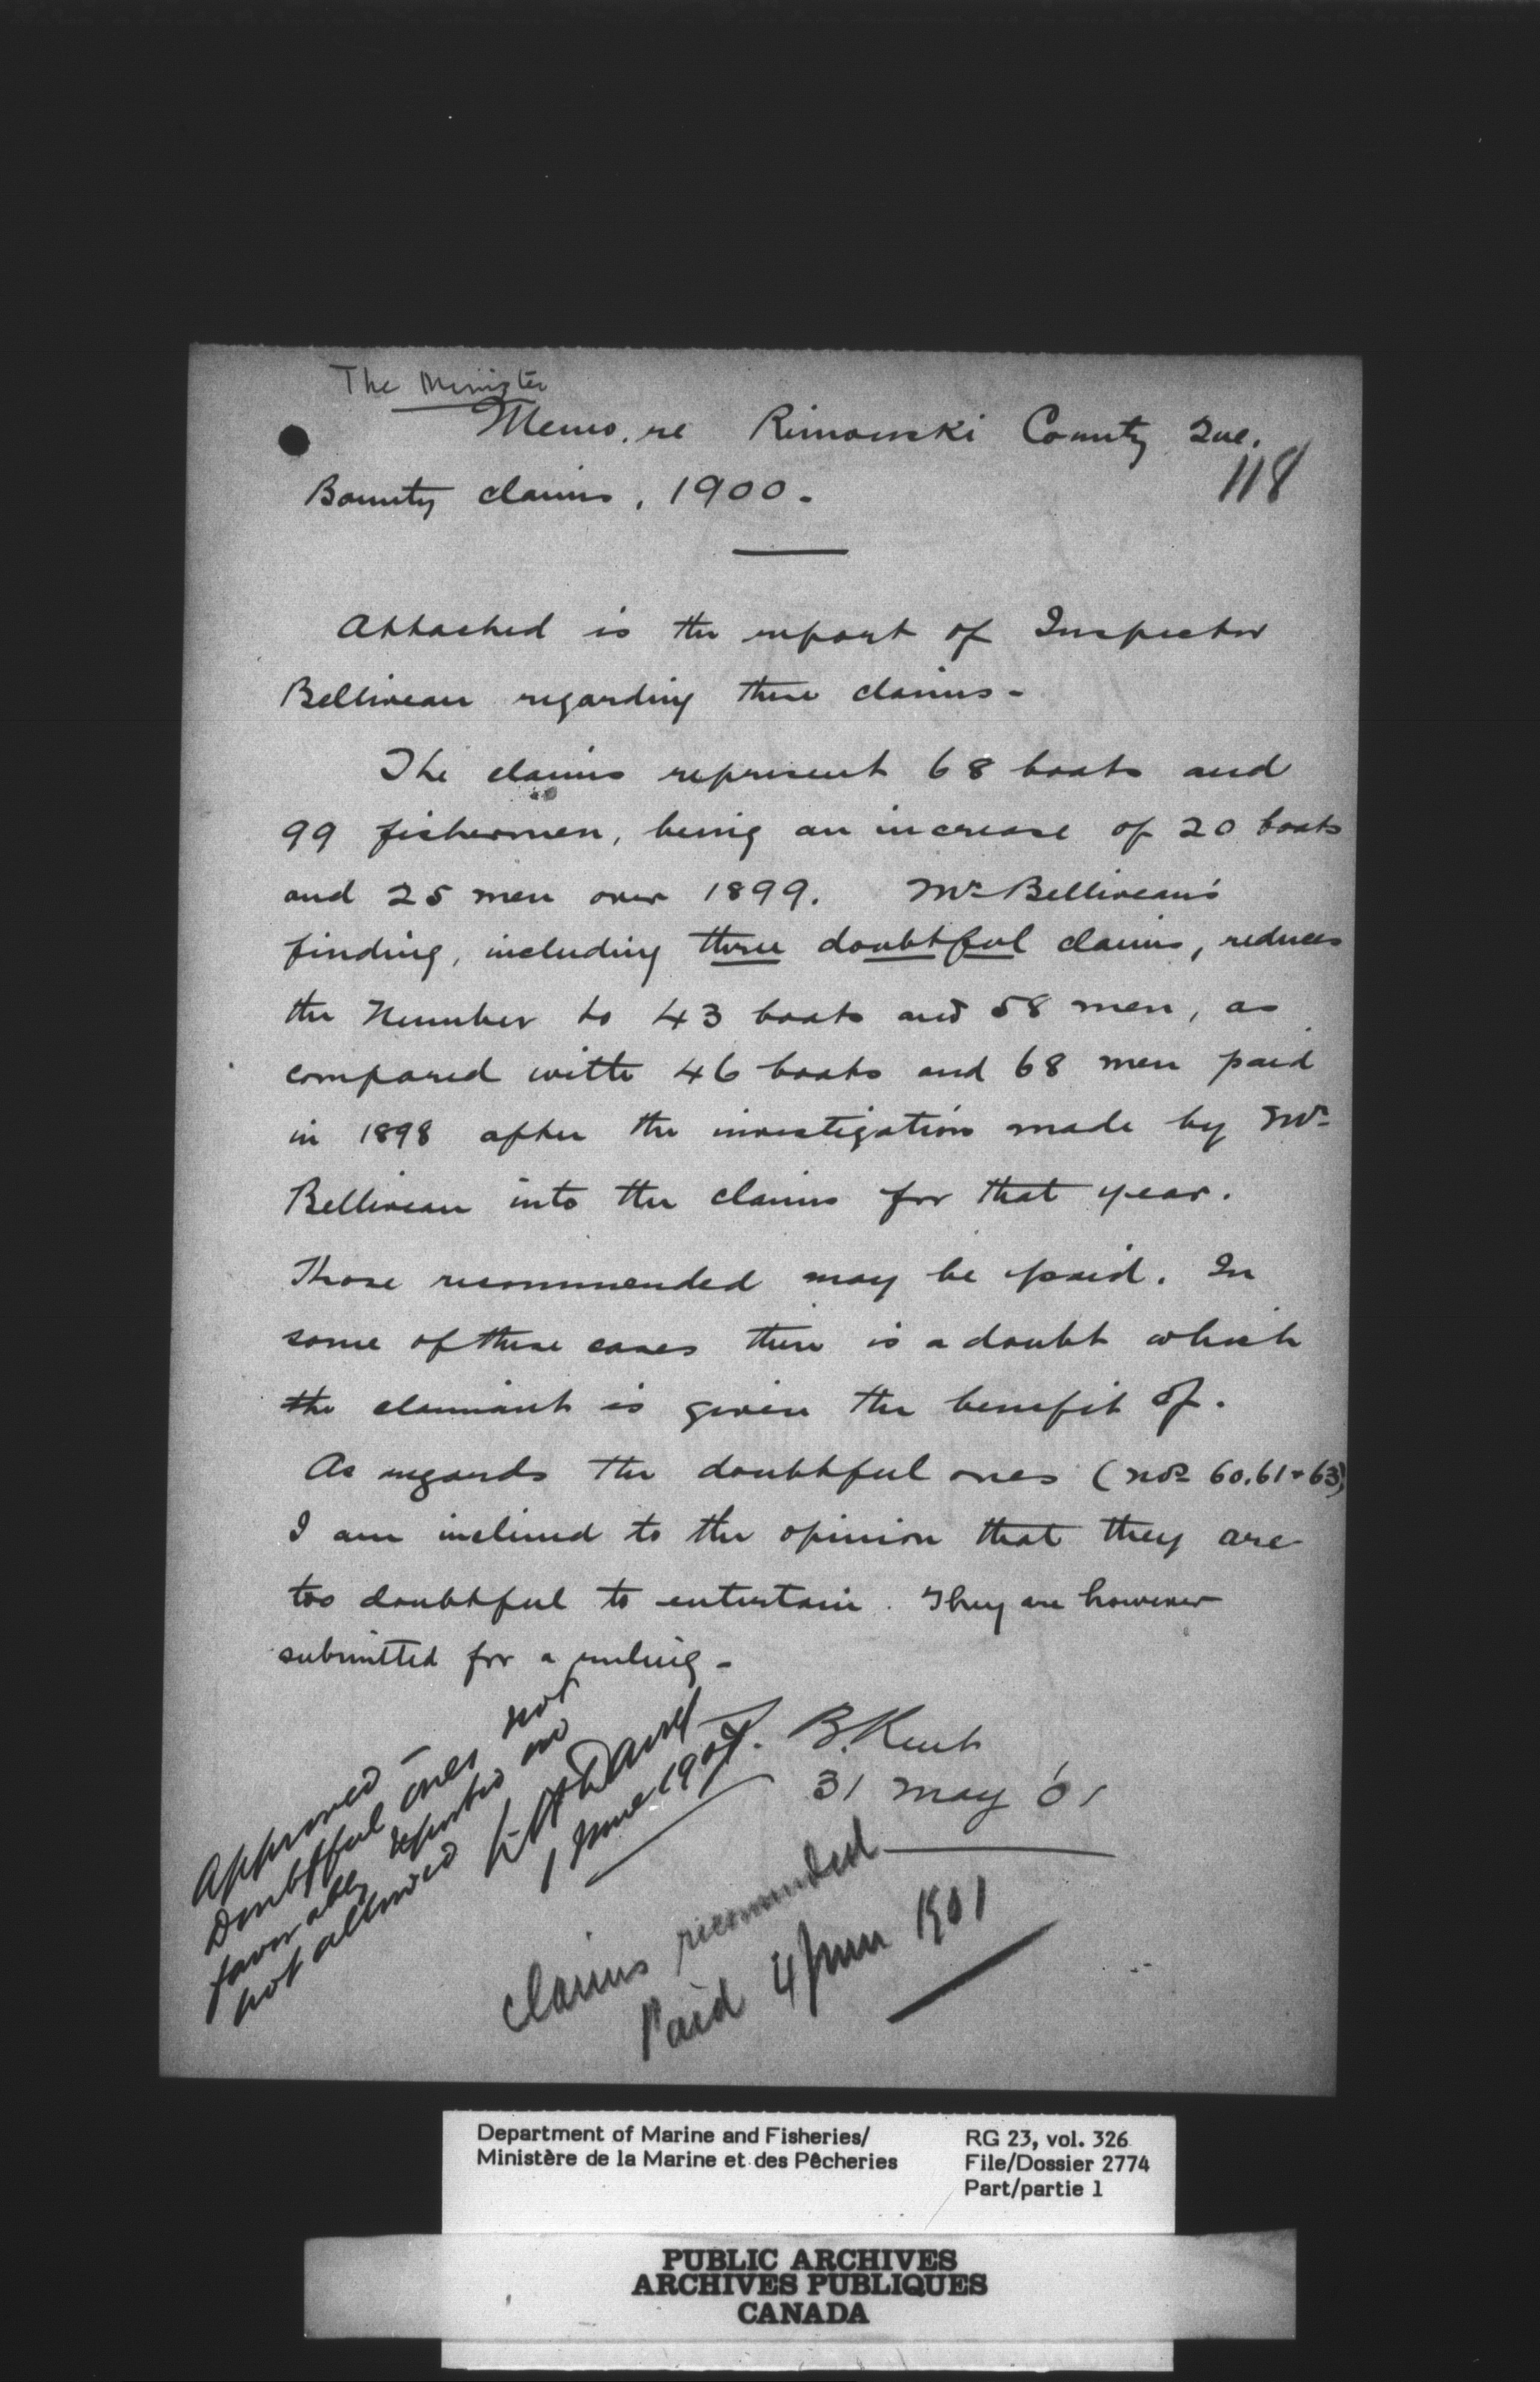 The Minister
Memo. re Rimouski County Que.
118
Bounty claims, 1900.
Attached is the report of Inspector
Belliveau regarding these claims -
The claims represent 68 boats and
99 fishermen, being an increase of 20 boats
and 25 men over 1899. Mr Belliveau's
finding, including three doubtful claims, reduces
the Number to 43 boats and 58 men, as
compared with 46 boats and 68 men paid
in 1898 after the investigation made by Mr
Belliveau into the claims for that year.
Those recommended may be paid. In
some of these cases there is a doubt which
the claimant is given the benefit of.
As regards the doubtful ones (nos 60.61 + 63)
I am inclined to the opinion that they are
too doubtful to entertain. They are however
submitted for a ruling -
B. Kent
31 May '01
Approved -
Doubtful ones not
favorably reported on
not allowed
1 June 1901
Claims recommended
Paid 4 June 1901
Department of Marine and Fisheries/
Ministère de la Marine et des Pêcheries
RG 23, vol. 326
File/Dossier 2774
Part/partie 1
PUBLIC ARCHIVES
ARCHIVES PUBLIQUES
CANADA